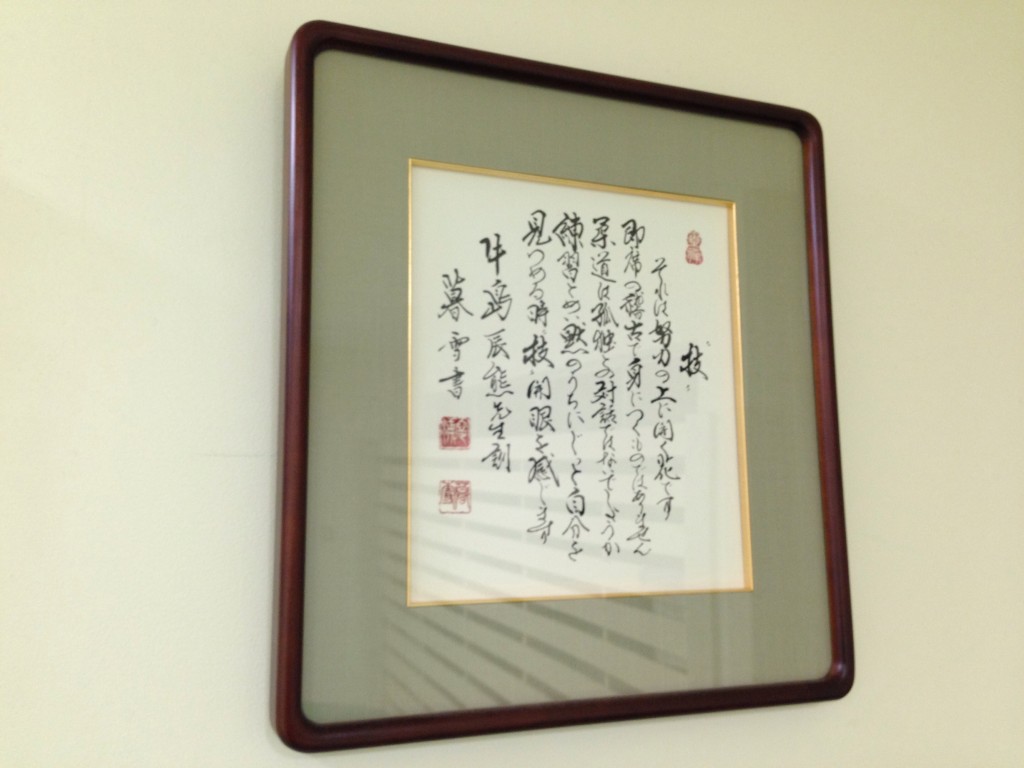 技
それは努力の上に開く花です
即席の稽古で身につくものではありません
柔道は孤独との対話ではないでしょうか
練習とめい黙のうちにじっと自分を
見つめる時、技、開眼を感じます
牛島辰熊先生剳
暮雪書